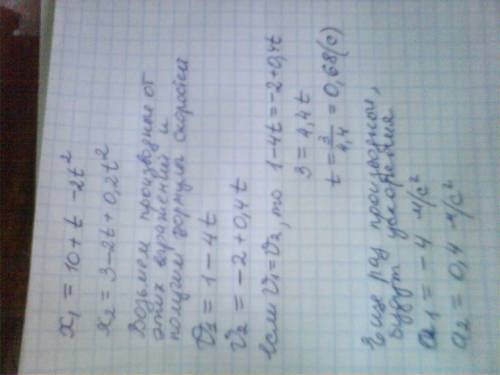 x₁ = 10 + t - 2t²
x₂ = 3 - 2t + 0,2t²
Возьмем производные от
этих выражений и
получим формулы скорости
v₁ = 1 - 4t
v₂ = -2 + 0,4t
если v₁ = v₂, то 1 - 4t = -2 + 0,4t
3 = 4,4t
t = 3/4,4 = 0,68 (с)
Еще раз производные,
будут ускорения
a₁ = -4 м/с²
a₂ = 0,4 м/с²